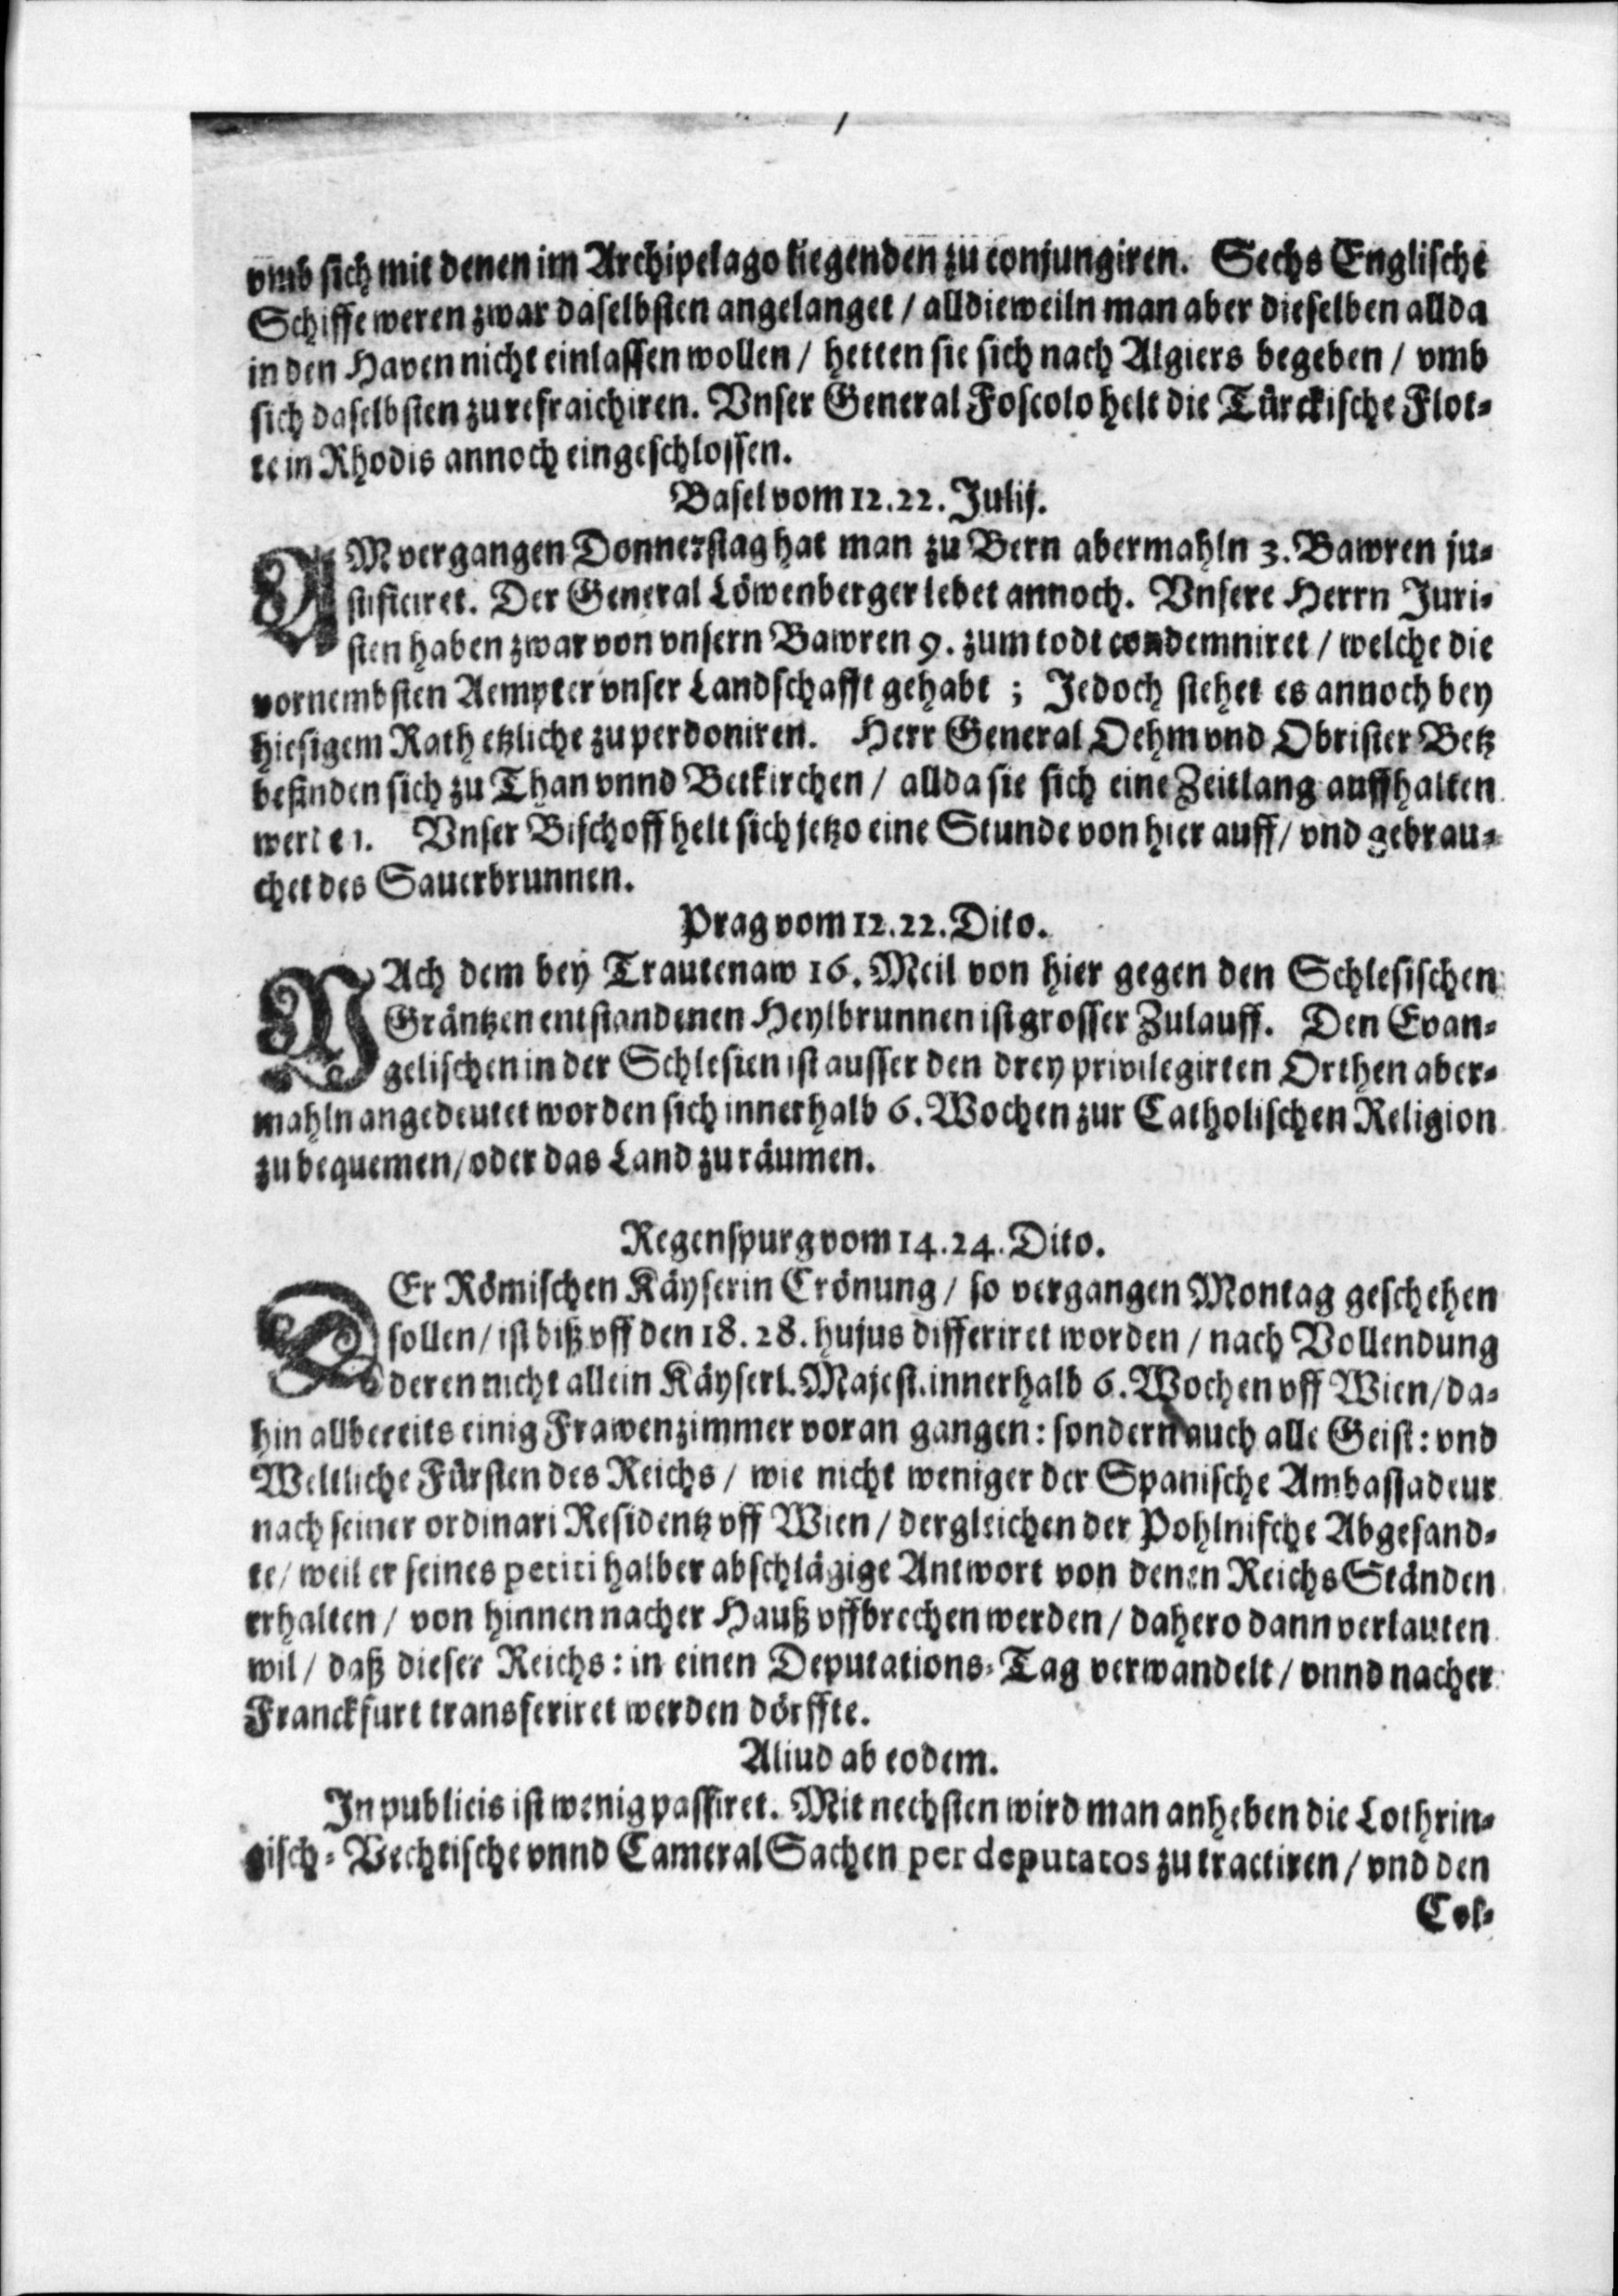 vmb sich mit denen im Archipelago liegenden zu conjungiren. Sechs Englische
Schiffe weren zwar daselbsten angelanget / alldieweiln man aber dieselben allda
in den Haven nicht einlassen wollen / hetten sie sich nach Algiers begeben / vmb
sich daselbsten zu refraichiren. Vnser General Foscolo helt die Türckische Flot-
te in Rhodis annoch eingeschlossen.
Basel vom 12.22. Julij.
AM vergangen Donnerstag hat man zu Bern abermahln 3. Bawren ju-
stificiret. Der General Löwenberger lebet annoch. Vnsere Herrn Juri-
sten haben zwar von vnsern Bawren 9. zum todt condemniret / welche die
vornembsten Aempter vnser Landschafft gehabt ; Jedoch stehet es annoch bey
hiesigem Rath etzliche zu perdoniren. Herr General Oehm vnd Obrister Betz
befinden sich zu Than vnnd Betkirchen / allda sie sich eine Zeitlang auffhalten
werden. Vnser Bischoff helt sich jetzo eine Stunde von hier auff / vnd gebrau-
chet des Sauerbrunnen.
Prag vom 12.22. Dito.
NAch dem bey Trautenaw 16. Meil von hier gegen den Schlesischen
Gräntzen entstandenen Heylbrunnen ist grosser Zulauff. Den Evan-
gelischen in der Schlesien ist ausser den drey privilegirten Orthen aber-
mahln angedeutet worden sich innerhalb 6. Wochen zur Catholischen Religion
zu bequemen / oder das Land zu räumen.
Regenspurg vom 14.24. Dito.
DEr Römischen Käyserin Crönung / so vergangen Montag geschehen
sollen / ist diß vff den 18.28. hujus differiret worden / nach Vollendung
deren nicht allein Käyserl. Majest. innerhalb 6. Wochen vff Wien / da-
hin allbereits einig Frawenzimmer voran gangen: sondern auch alle Geist: vnd
Weltliche Fürsten des Reichs / wie nicht weniger der Spanische Ambassadeur
nach seiner ordinari Residentz vff Wien / dergleichen der Pohlnische Abgesand-
te / weil er seines petiti halber abschlägige Antwort von denen Reichs Ständen
erhalten / von hinnen nacher Hauß vffbrechen werden / dahero dann verlauten
wil / daß dieser Reichs: in einen Deputations-Tag verwandelt / vnnd nacher
Franckfurt transferiret werden dörffte.
Aliud ab eodem.
In publicis ist wenig passiret. Mit nechsten wird man anheben die Lothrin-
gisch-Vechtische vnnd Cameral Sachen per deputatos zu tractiren / vnd den
Col-